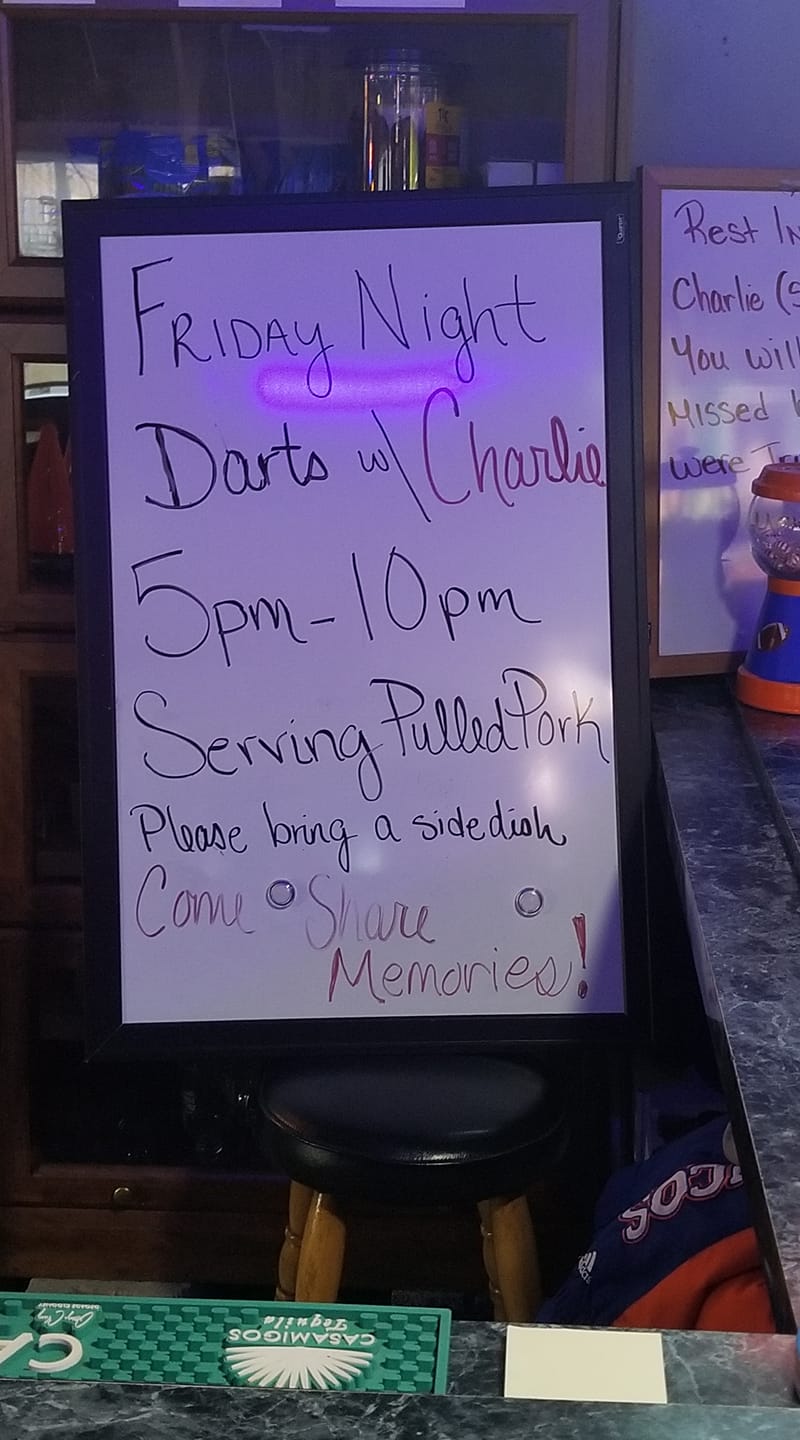 FRIDAY Night
Darts w\ Charlie
5pm-10pm
Serving Pulled Pork
Please bring a side dish
Come Share
Memories!
Rest In
Charlie (S
You will
Missed
were
CASAMIGOS
Tequila